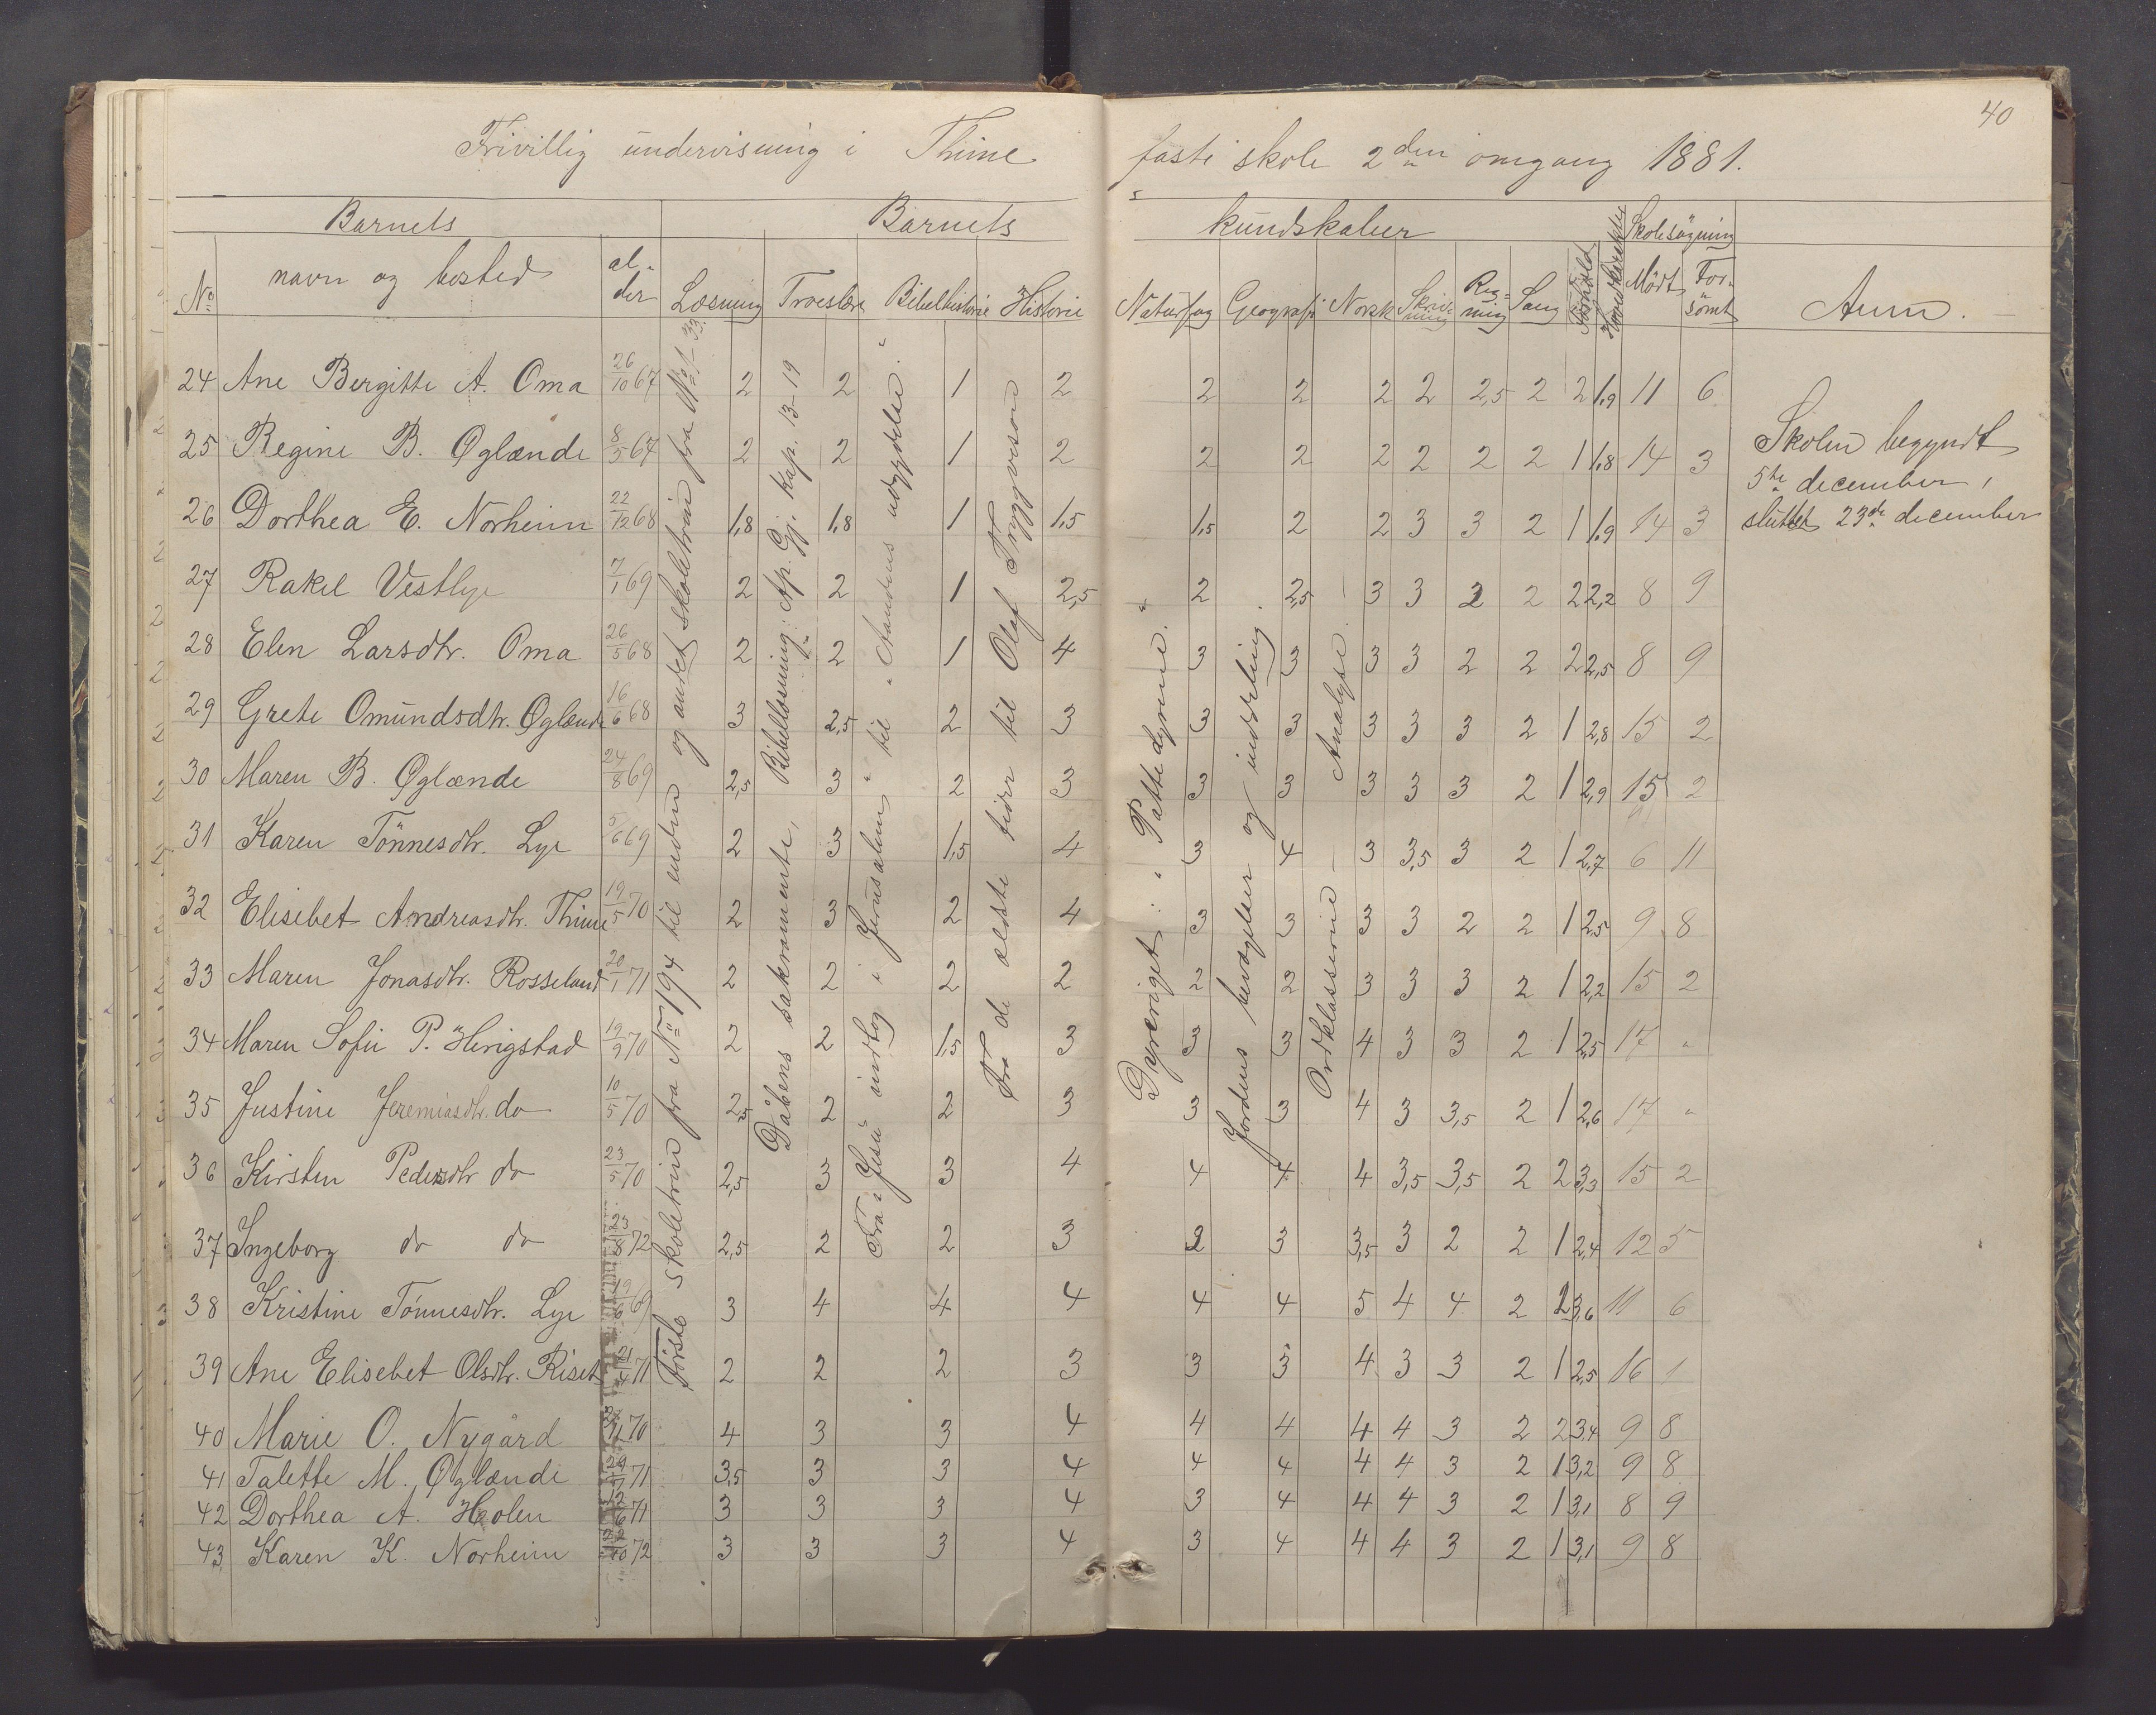 40
Frivillig undervisning i Thime faste skole 2den omgang 1881.
Barnets Barnets kundskaber Skolesøgning
No navn og bosted alder Læsning Troeslære Bibelhistorie Historie Naturfag Geografi Norsk Skrivning Regning Sang Forhold Hovedkarakter Mødt Forsømt Anm.
24 Ane Bergitte A. Oma 26/10 67 2 2 1 2 2 2 2 2 2,5 2 2 1,9 11 6
25 Regine B. Øglænde 8/5 67 2 2 1 2 2 2 2 2 2 2 1 1,8 14 3
26 Dorthea E. Norheim 22/12 68 1,8 1,8 1 1,5 1,5 2 2 3 3 2 1 1,9 14 3
27 Rakel Vestlye 7/1 69 2 2 1 2,5 2 2,5 3 3 2 2 2 2,2 8 9
28 Elen Larsdtr. Oma 26/5 68 2 2 1 4 3 3 3 3 2 2 2 2,5 8 9
29 Grete Omundsdtr. Øglænde 16/6 68 3 2,5 2 3 3 3 3 3 3 2 1 2,8 15 2
30 Maren B. Øglænde 24/8 69 2,5 3 2 3 3 3 3 3 3 2 1 2,9 15 2
31 Karen Tönnesdtr. Lye 5/6 69 2 3 1,5 4 3 4 3 3,5 3 2 1 2,7 6 11
32 Elisebet Andreasdtr. Thime 19/5 70 2 3 2 4 3 3 3 3 2 2 1 2,5 9 8
33 Maren Jonasdtr. Rosseland 20/1 71 2 2 2 2 2 2 3 3 3 2 1 2,2 15 2
34 Maren Sofie P. Herigstad 19/9 70 2 2 1,5 3 3 3 4 3 3 2 1 2,5 17 "
35 Justine Jeremiasdtr. do 10/5 70 2,5 2 2 3 3 3 4 3 3,5 2 1 2,6 17 "
36 Kirsten Pedersdtr do 23/5 70 2,5 3 3 4 4 4 4 3,5 3,5 2 2 3,3 15 2
37 Ingeborg do do 23/8 72 2,5 2 2 3 2 3 3,5 3 2 2 1 2,4 12 5
38 Kristine Tönnesdtr. Lye 19/6 69 3 4 4 4 4 4 5 4 4 2 2 3,6 11 6
39 Ane Elisebet Olsdtr. Riset 21/4 71 2 2 2 3 3 3 4 3 3 2 1 2,5 16 1
40 Marie O. Nygård 70 4 3 3 4 4 4 4 4 3 2 2 3,4 9 8
41 Talette M. Øglænde 71 3,5 3 3 4 4 4 4 4 3 2 1 3,2 9 8
42 Dorthea A. Holen 71 3 3 3 4 3 4 4 4 3 2 1 3,1 8 9
43 Karen K. Norheim 72 3 3 3 4 3 4 4 4 3 2 1 3,1 9 8
Første skoletrin fra No 194 til enden og andet skoletrin fra No 1-33.
Dåbens sakramente, Bibellæsning: Ap. Gj. kap. 13-19
Fra "Jesu indtog i Jerusalem" til "Aandens udgydelse."
Fra de ældste tider til Olaf Trygvesson
Dyreriget: "Pattedyrene."
Jordens bevægelser og inddeling.
Ordklasserne - Analyse.
Skolen begyndt
5te december,
sluttet 23de december